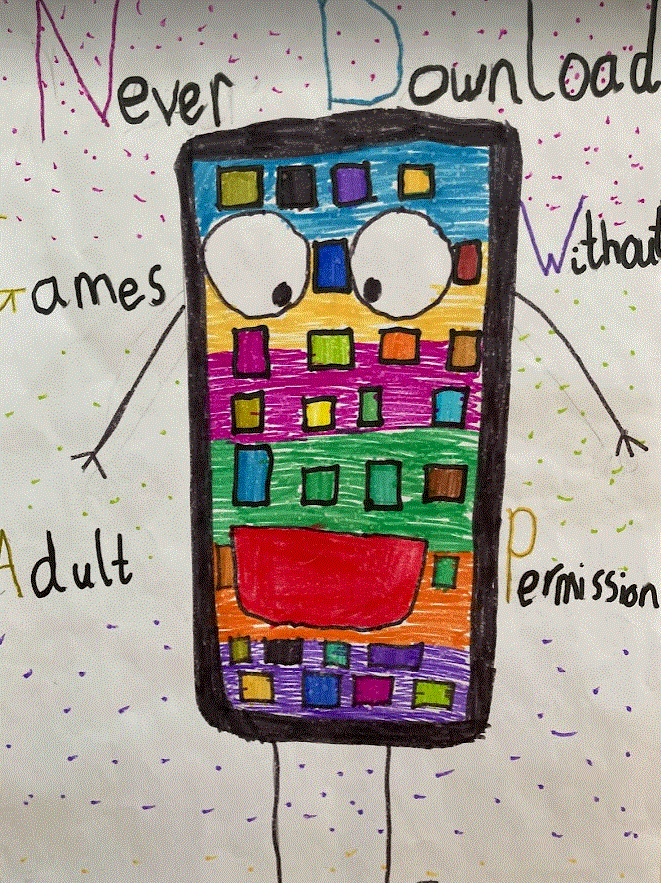 Never Download
Games Without
Adult Permission